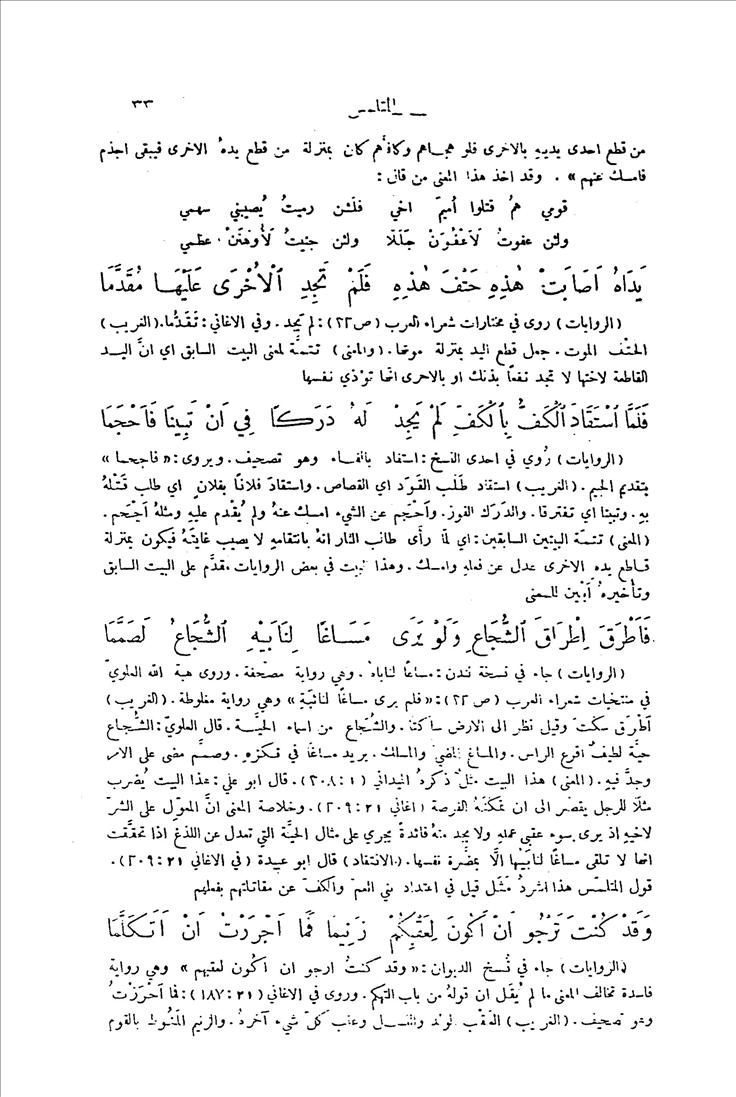 المتلمس ٣٣
من قطع احدى يديهِ بالاخرى فلو هجاهم وكافأهم كان بمنزلة من قطع يدهُ الاخرى فيبقى اجذم
فامسك عنهم» . وقد اخذ هذا المعنى من قال :
قومي همُ قتلوا أُميمَ اخي فلئن رميتُ يُصيبني سهمي
ولئن عفوتُ لَأعْفُوَنْ جَلَلًا ولئن جنيتُ لَأُوهِنَنْ عظمي
يَدَاهُ اَصَابَتْ هٰذِهِ حَتْفَ هٰذِهِ فَلَمْ تَجِدِ ٱلْأُخْرَى عَلَيْهَا مُقَدَّمَا
(الروايات) روى في مختارات شعراء العرب (ص٢٢): لم يَجِد . وفي الاغاني : تَقَدُّما. (الغريب)
الحَتْف الموت . جعل قطع اليد بمنزلة موتها . (والمعنى) تتمَّة لمعنى البيت السابق اي انَّ اليد
القاطعة لاختها لا تجد نفعًا بذلك او بالاحرى انها تؤذي نفسها
فَلَمَّا ٱسْتَقَادَ ٱلْكَفُّ بِٱلْكَفِّ لَمْ يَجِدْ لَهُ دَرَكًا فِي اَنْ تَبِينَا فَاَحْجَمَا
(الروايات) رُوي في احدى النسخ : استفاد بالفاء وهو تصحيف . ويروى : «فاجحما»
بتقديم الجيم . (الغريب) استقاد طَلَب القَوَد اي القصاص . واستقادَ فلانًا بفلانٍ اي طلب قَتْلهُ
بهِ . وتبينا اي تفترقا . والدَرَك الفوز . واَحْجَم عن الشيء امسك عنهُ ولم يُقْدم عليهِ ومثلهُ اَجْحَم .
(المعنى) تتمَّة البيتين السابقين : اي لمَّا رأَى طالب الثار انهُ بانتقامهِ لا يصيب غايتَهُ فيكون بمنزلة
قاطع يده الاخرى عدل عن فعلهِ وامسك . وهذا البيت في بعض الروايات مقدَّم على البيت السابق
وتأخيرهُ اَبْيَن للمعنى
فَاَطْرَقَ اِطْرَاقَ ٱلشُّجَاعِ وَلَوْ يَرَى مَسَاغًا لِنَابَيْهِ ٱلشُّجَاعُ لَصَمَّمَا
(الروايات) جاء في نسخة لندن : مساغًا لناباهُ . وهي رواية مصحَّفة . وروى هبة الله العلويّ
في منتخبات شعراء العرب (ص٢٢): «فلم يرى مساغًا لنائبة» وهي رواية مغلوطة . (الغريب)
اَطرَق سكَتَ وقيل نظر الى الارض ساكتًا . والشُّجاع من اسماء الحيَّة . قال العلويّ : الشُّجاع
حيَّة لطيفٌ اقرع الراس . والمساغ المُضيّ والمسلك . يريد مساغًا في نَكزِهِ . وصمَّم مضى على الامر
وجدَّ فيهِ . (المعنى) هذا البيت مثلٌ ذكرهُ الميداني (١ : ٢٠٨) . قال ابو علي : هذا البيت يُضرب
مثلًا للرجل يقصّر الى ان تمكنَهُ الفرصة (اغاني ٢١ : ٢٠٩) . وخلاصة المعنى انَّ المعوّل على الشرّ
لاخيهِ اذ يرى سوء عقبى عملهِ ولا يجد منهُ فائدةً يجري على مثال الحيَّة التي تعدل عن اللذغ اذا تحقَّقت
انها لا تلقى مساغًا لنابَيْها الَّا بمضرَّة نفسها . (الانتقاد) قال ابو عبيدة (في الاغاني ٢١ : ٢٠٩) .
قول المتلمّس هذا اشردُ مَثَل قيل في اعتداد بني العمّ والكفّ عن مقاتلتهم بفعلهم
وَقَدْ كُنْتَ تَرْجُو اَنْ اَكُونَ لِعَقْبِكُمْ زَنِيمًا فَمَا اَجْرَرْتُ اَنْ اَتَكَلَّمَا
(الروايات) جاء في نُسخ الديوان : «وقد كنتُ ارجو ان اكون لعقبهم» وهي رواية
فاسدة تخالف المعنى ما لم يُقَل ان قولهُ من باب التهكّم . وروى في الاغاني (٢١ : ١٨٧) : فما اَحْرَزْتُ
وهو تصحيف . (الغريب) العَقْب الولد والنسل وعقب كلّ شيء آخرهُ . والزنيم المَنُوط بالقوم